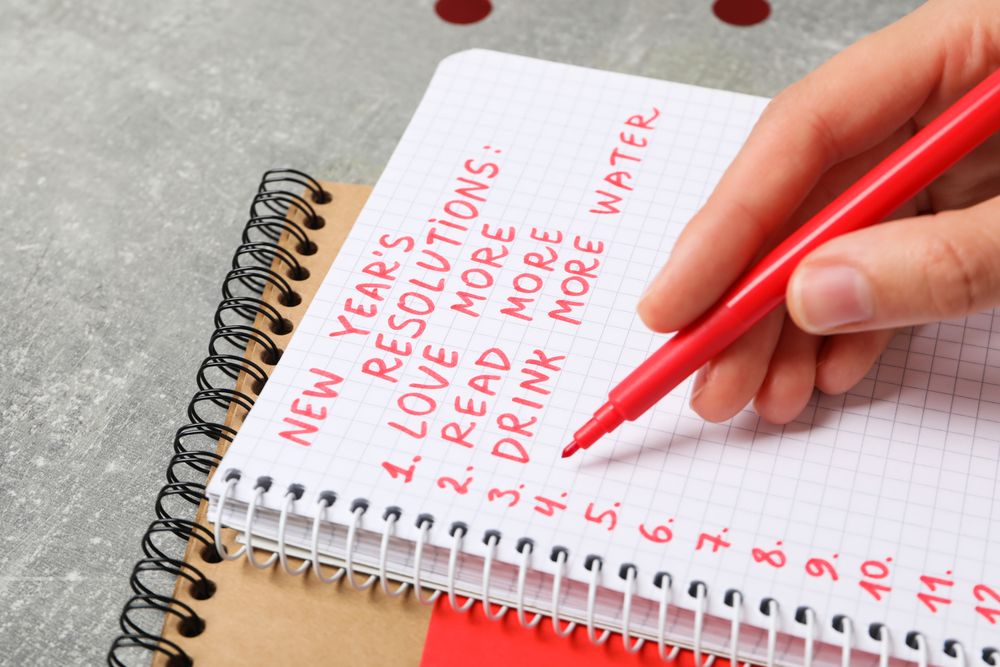 NEW YEAR'S
RESOLUTIONS:
1. LOVE MORE
2. READ MORE
3. DRINK MORE WATER
4.
5.
6.
7.
8.
9.
10.
11.
12